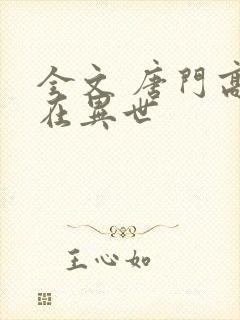 全文 唐門高
在異世
王心如